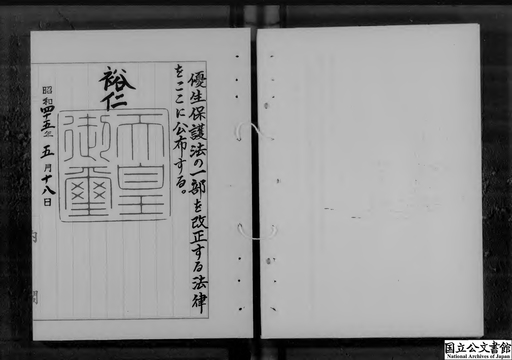 優生保護法の一部を改正する法律
をここに公布する。
裕仁
天皇
御璽
昭和四十五年五月十八日
内閣
国立公文書館
National Archives of Japan